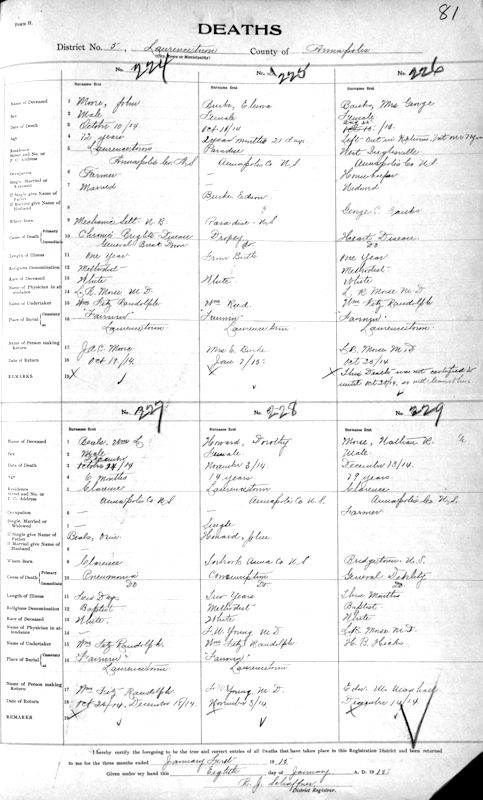 FORM H.
81
DEATHS
District No. 5, Lawrencetown County of Annapolis
(City, Town or Municipality)
No. 224 No. 225 No. 226
Surname first Surname first Surname first
Name of Deceased 1 Moore, John Burke, Elena Banks, Mrs George
Sex 2 Male Female Female
Date of Death 3 October 10/14 Oct 18/14
Age 4 72 years 2 years months 21 days Left out in Return
Residence Street and No. or P. O. Address 5 Lawrencetown Paradise West Inglisville
Annapolis Co. N.S Annapolis Co N.S Annapolis Co N.S
Occupation 6 Farmer — Housekeeper
Single, Married or Widowed 7 Married Widowed
If Single give Name of Father If Married give Name of Husband 8 Burke Edwin George C. Banks
Where Born 9 Mechanic Settt N.B. Paradise N.S
Cause of Death Primary Immediate 10 Chronic Brights Disease Dropsy Heart Disease
General Break Down Do Do
Length of Illness 11 One Year From Birth One Year
Religious Denomination 12 Methodist Methodist
Race of Deceased 13 White White White
Name of Physician in attendance 14 L. R. Morse M.D. L. R. Morse M.D
Name of Undertaker 15 Wm Fitz Randolph Wm Reed Wm Fitz Randolph
Place of Burial Cemetery at 16 "Fairview" "Fairview" "Fairview"
Lawrencetown Lawrencetown Lawrencetown
Name of Person making Return 17 J. A. C. Moore Mrs E. Burke L.R. Morse M.D
Date of Return 18 Oct 19/14. Jan 2/15 Oct 23/14
REMARKS 19 X X X This Death was not certified
until Oct 20/14,
No. 227 No. 228 No. 229
Surname first Surname first Surname first
Name of Deceased 1 Beals, Wm L. Howard, Dorothy Morse, Nathan R.
Sex 2 Male Female Male
Date of Death 3 October 24/14 November 3/14 December 13/14
Age 4 6 Months 19 years 79 years
Residence Street and No. or P. O. Address 5 Clarence Lawrencetown Clarence
Annapolis Co N.S Annapolis Co N.S. Annapolis Co N.S.
Occupation 6 — — Farmer
Single, Married or Widowed 7 — Single
If Single give Name of Father If Married give Name of Husband 8 Beals, Howard, John
Where Born 9 Clarence Anna Co N S Bridgetown N.S.
Cause of Death Primary Immediate 10 Pneumonia Consumption General Debility
Do Do Do
Length of Illness 11 Days Two Years Three Months
Religious Denomination 12 Baptist Methodist Baptist
Race of Deceased 13 White White White
Name of Physician in attendance 14 — F. W. Young M D L. R. Morse M.D.
Name of Undertaker 15 Wm Fitz Randolph Wm Fitz Randolph H. B. Hicks
Place of Burial Cemetery at 16 "Fairview" "Fairview"
Lawrencetown Lawrencetown
Name of Person making Return 17 Wm Fitz Randolph F W Young M.D. Edw. W.
Date of Return 18 Oct 26/14. December 18/14 November 3/14 December 14/14
REMARKS 19 X X X
I hereby certify the foregoing to be the true and correct entries of all Deaths that have taken place in this Registration District and been returned
to me for the three months ended January First 1915
Given under my hand this Eighth day of January A. D. 1915
B. J. Schaffner
District Registrar.